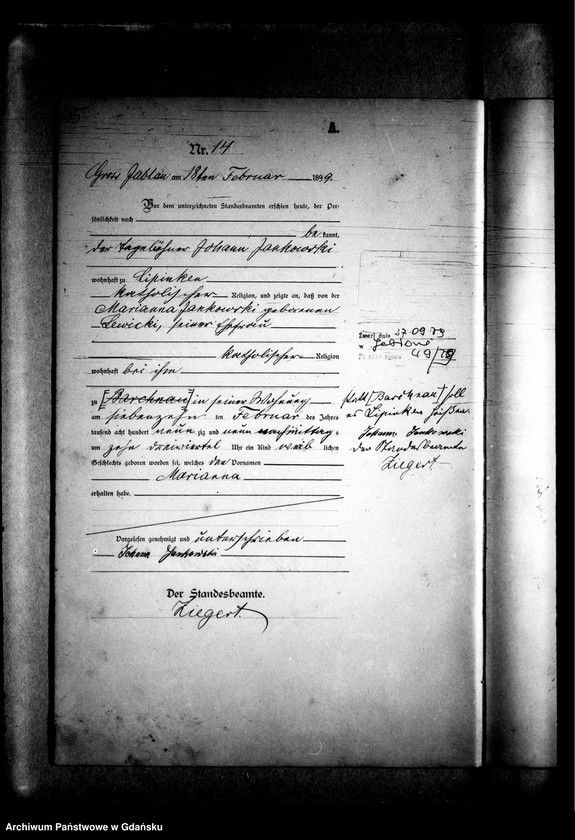 A.
Nr. 14
Gross Jablau am 18ten Februar 1899.
Vor dem unterzeichneten Standesbeamten erschien heute, der Per-
sönlichkeit nach
bekannt,
der Tagelöhner Johann Jankowski
wohnhaft zu Lipinken
katholischer Religion, und zeigte an, daß von der
Marianna Jankowski geborenen
Lewicki, seiner Ehefrau
katholischer Religion
wohnhaft bei ihm
zu [Barchnau] in seiner Wohnung
am siebenzehnten Februar des Jahres
tausend acht hundert neunzig und neun nachmittags
um zehn dreiviertel Uhr ein Kind weiblichen
Geschlechts geboren worden sei, welches den Vornamen
Marianna
erhalten habe.
Vorgelesen genehmigt und unterschrieben
Johann Jankowski
Der Standesbeamte.
Ziegert.
27.09.79
w Jabłowo
49/79
Statt [Barchnau] soll
es Lipinken heißen.
Johann Jankowski
Der Standesbeamte
Ziegert
Archiwum Państwowe w Gdańsku